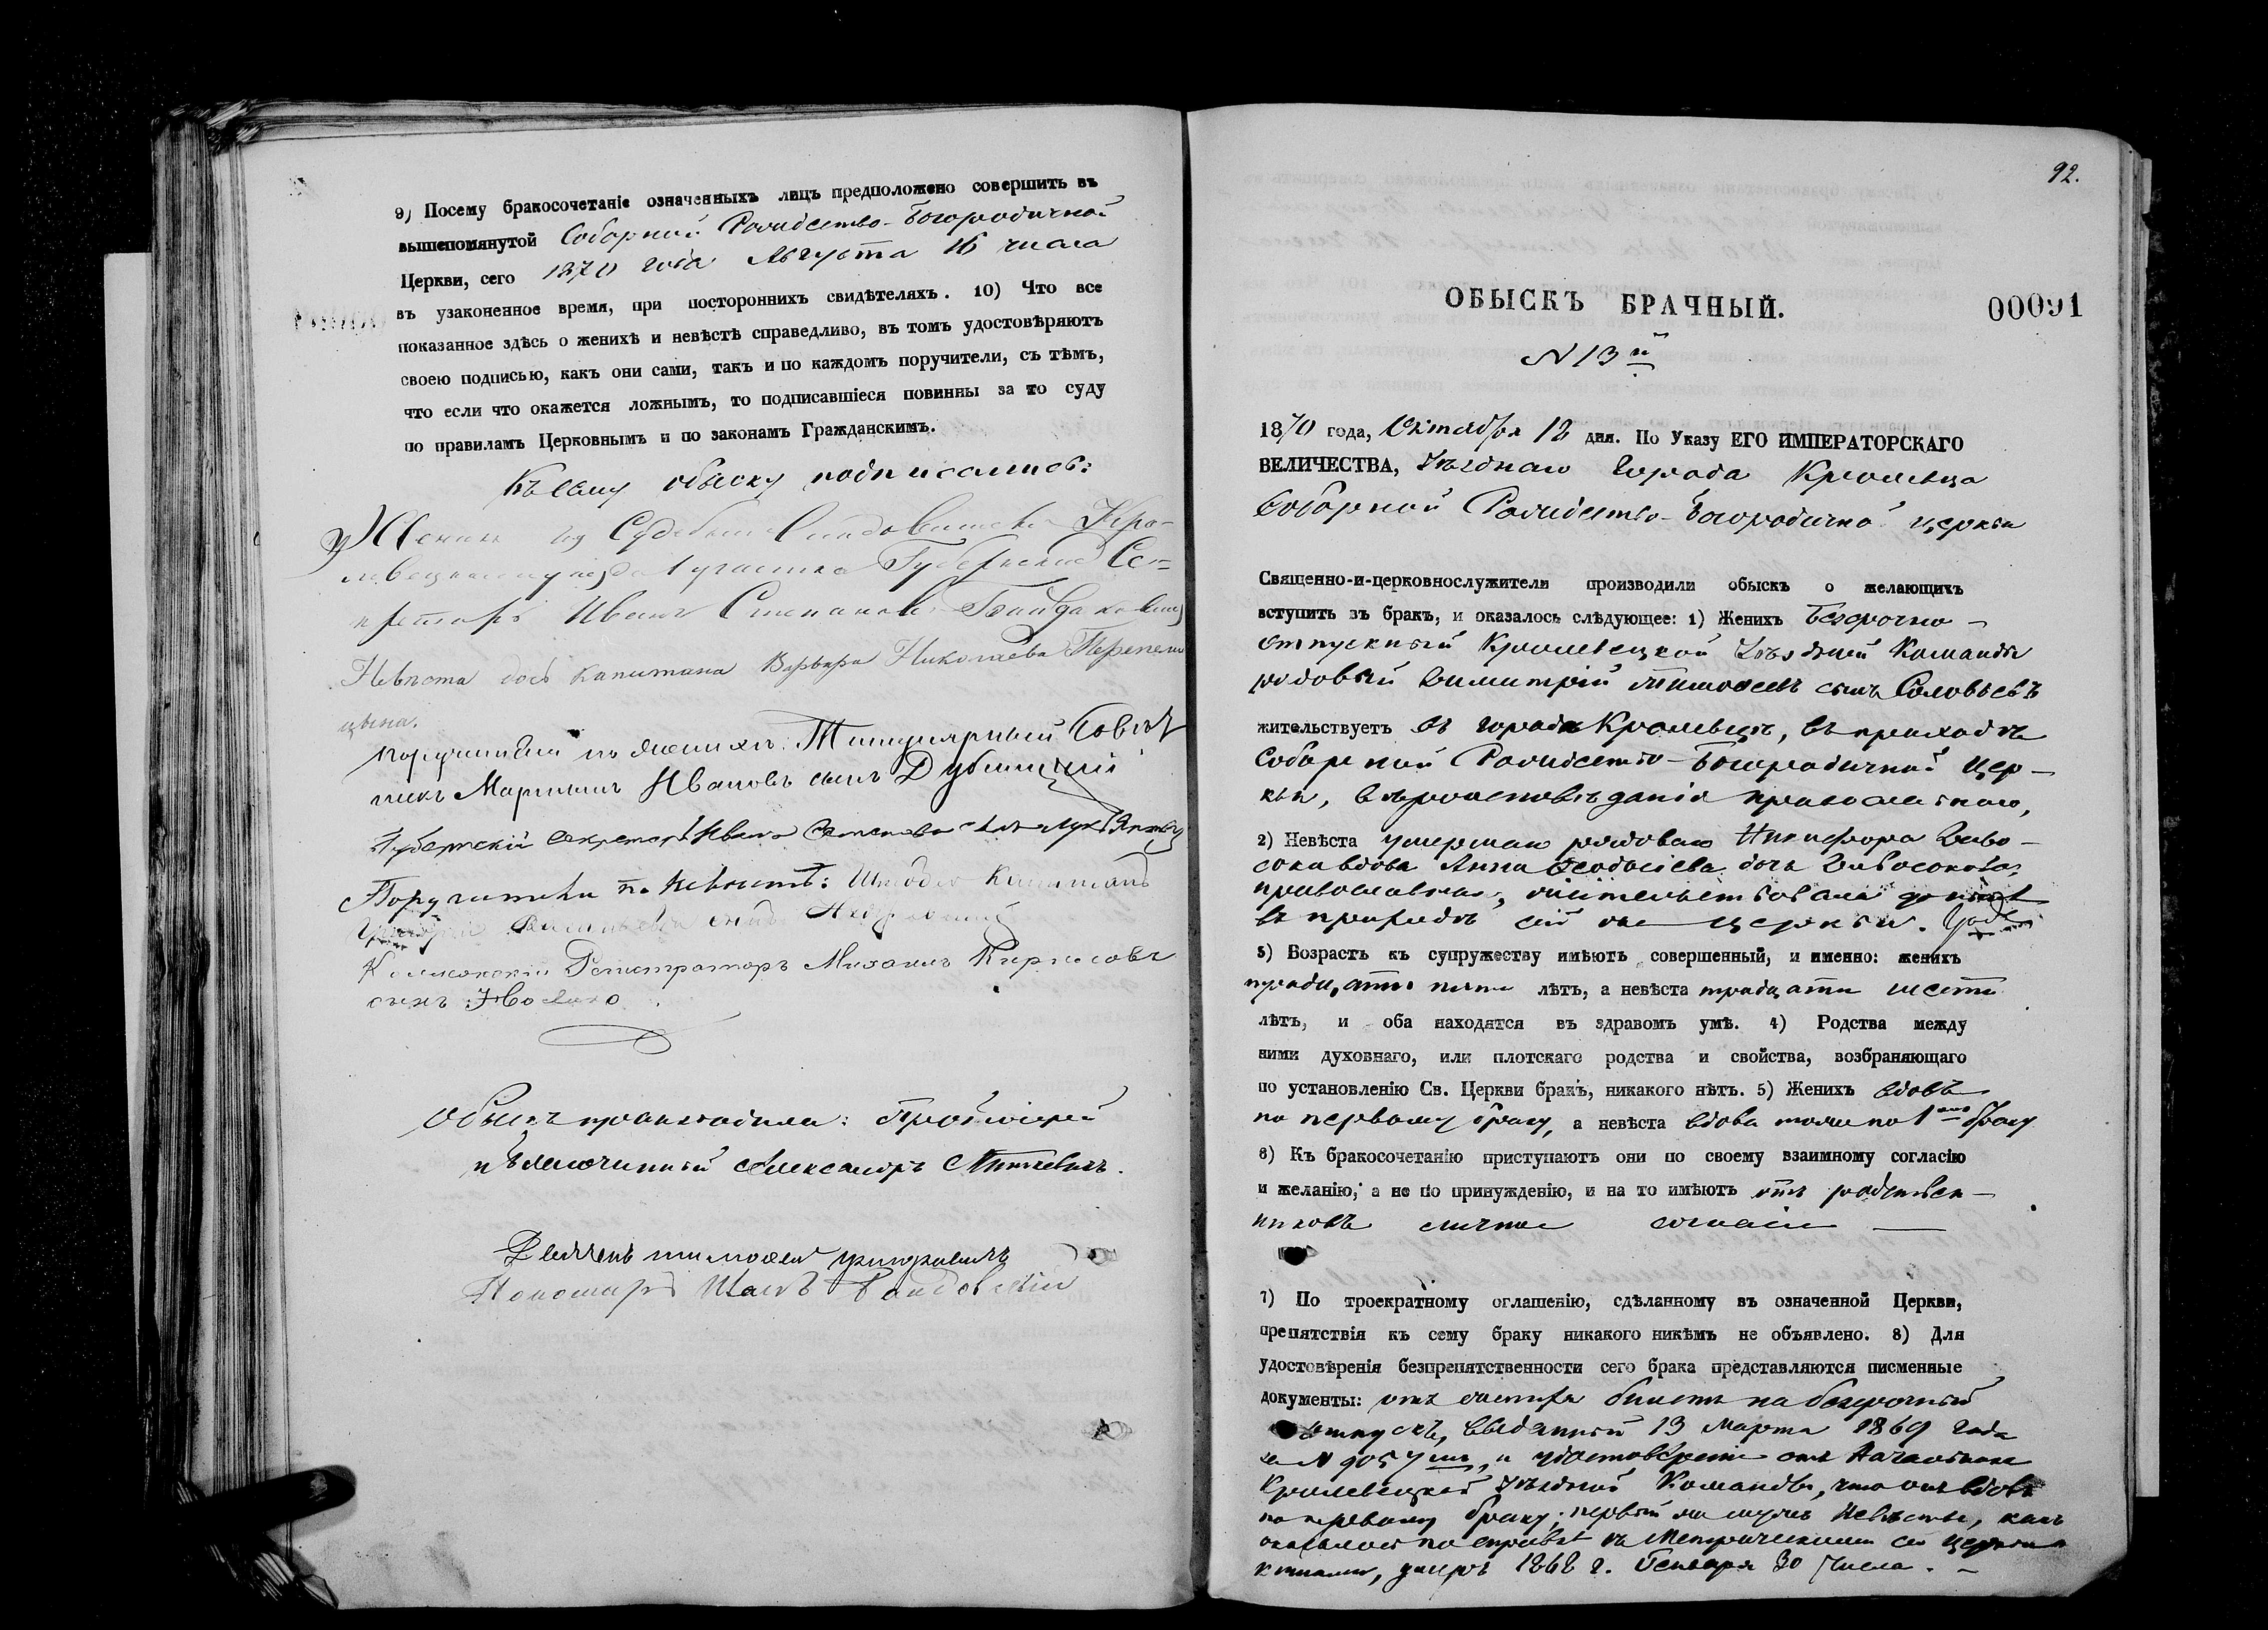 9) Посему бракосочетаніе означенныхъ лицъ предположено совершить въ
вышепомянутой Соборной Рождество-Богородичной
Церкви, сего 1870 года Августа 16 числа
въ узаконенное время, при постороннихъ свидѣтеляхъ. 10) Что все
показанное здѣсь о женихѣ и невѣстѣ справедливо, въ томъ удостовѣряютъ
своею подписью, какъ они сами, такъ и по каждомъ поручители, съ тѣмъ,
что если что окажется ложнымъ, то подписавшіеся повинны за то суду
по правиламъ Церковнымъ и по законамъ Гражданскимъ.
Къ сему обыску подписались:
Женихъ Кро-
левецкаго уезда 1 участка Губернскій Се=
кретарь Иванъ Степановъ
Невѣста дочь Капитана Варвара Николаева
цына.
по женихѣ: Титулярный Совѣт
никъ Мартинъ Ивановъ сынъ
Губернскій секретарь Иванъ
Поручители по Невѣстѣ: Штабсъ Капитанъ
сынъ
Регистраторъ Михаилъ
сынъ
Обыскъ производили: Протоіерей
и благочинный Александръ
Пономарь
92.
ОБЫСКЪ БРАЧНЫЙ.
00091
N 13й
1870 года, Октября 12 дня. По Указу ЕГО ИМПЕРАТОРСКАГО
ВЕЛИЧЕСТВА, Уѣзднаго города Кролевца
Соборной Рождество-Богородичной церкви
Священно-и-церковнослужители производили обыскъ о желающихъ
вступить въ бракъ, и оказалось слѣдующее: 1) Женихъ Безсрочно-
отпускный Кролевецкой Уѣздной Команды
рядовый Димитрій Тимофеевъ сынъ Соловьевъ
жительствуетъ въ городѣ Кролевцѣ, въ приходѣ
Соборной Рождество-Богородичной Цер-
кви, вѣроисповѣданія православнаго,
2) Невѣста умершаго рядоваго Никифора
вдова Анна Феодосіева дочь
православная, жительствовала до
въ приходѣ сей же церкви.
3) Возрастъ къ супружеству имѣютъ совершенный, и именно: женихъ
тридцати пяти лѣтъ, а невѣста тридцати шести
лѣтъ, и оба находятся въ здравомъ умѣ. 4) Родства между
ними духовнаго, или плотскаго родства и свойства, возбраняющаго
по установленію Св. Церкви бракъ, никакого нѣтъ. 5) Женихъ вдовъ
по первому браку, а невѣста вдова тоже по 1му браку
6) Къ бракосочетанію приступаютъ они по своему взаимному согласію
и желанію, а не по принужденію, и на то имѣютъ отъ родствен-
никовъ личное согласіе
7) По троекратному оглашенію, сдѣланному въ означенной Церкви,
препятствія къ сему браку никакого никѣмъ не объявлено. 8) Для
удостовѣренія безпрепятственности сего брака представляются писменные
документы: отъ жениха билетъ на безсрочный
отпускъ, выданный 13 Марта 1869 года
за N 9057, и удостовѣреніе отъ Начальника
Кролевецкой Уѣздной Команды, что онъ вдовъ
по первому браку; первый же мужъ Невѣсты, какъ
оказалось по справкѣ въ Метрическихъ сей церкви
книгахъ, умеръ 1868 г. Генваря 30 числа. -